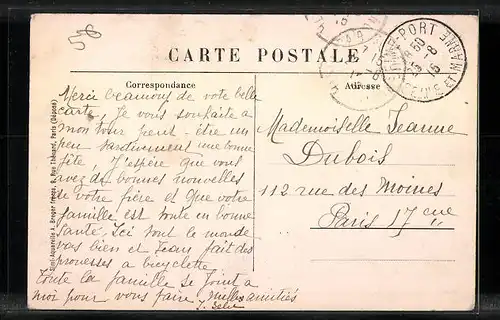 56
CARTE POSTALE
Correspondance
Adresse
Merci beaucoup de vote belle
carte, Je vous souhaite a
mon tour peut-être un
peu tardivement une bonne
fête, J'espère que vous
avez de bonnes nouvelles
de votre frère et que votre
famille est toute en bonne
santé. Ici tout le monde
vas bien et Jean fait des
prouesses a bicyclette
toute la famille se joint a
moi pour vous faire milles amitiés
Mademoiselle Jeanne
Dubois
112 rue des Moines
Paris 17eme
PORT
SEINE ET MARNE
Simi-Aquarelle A. Breger Frères, 9, Rue Thénard, Paris (Déposé)